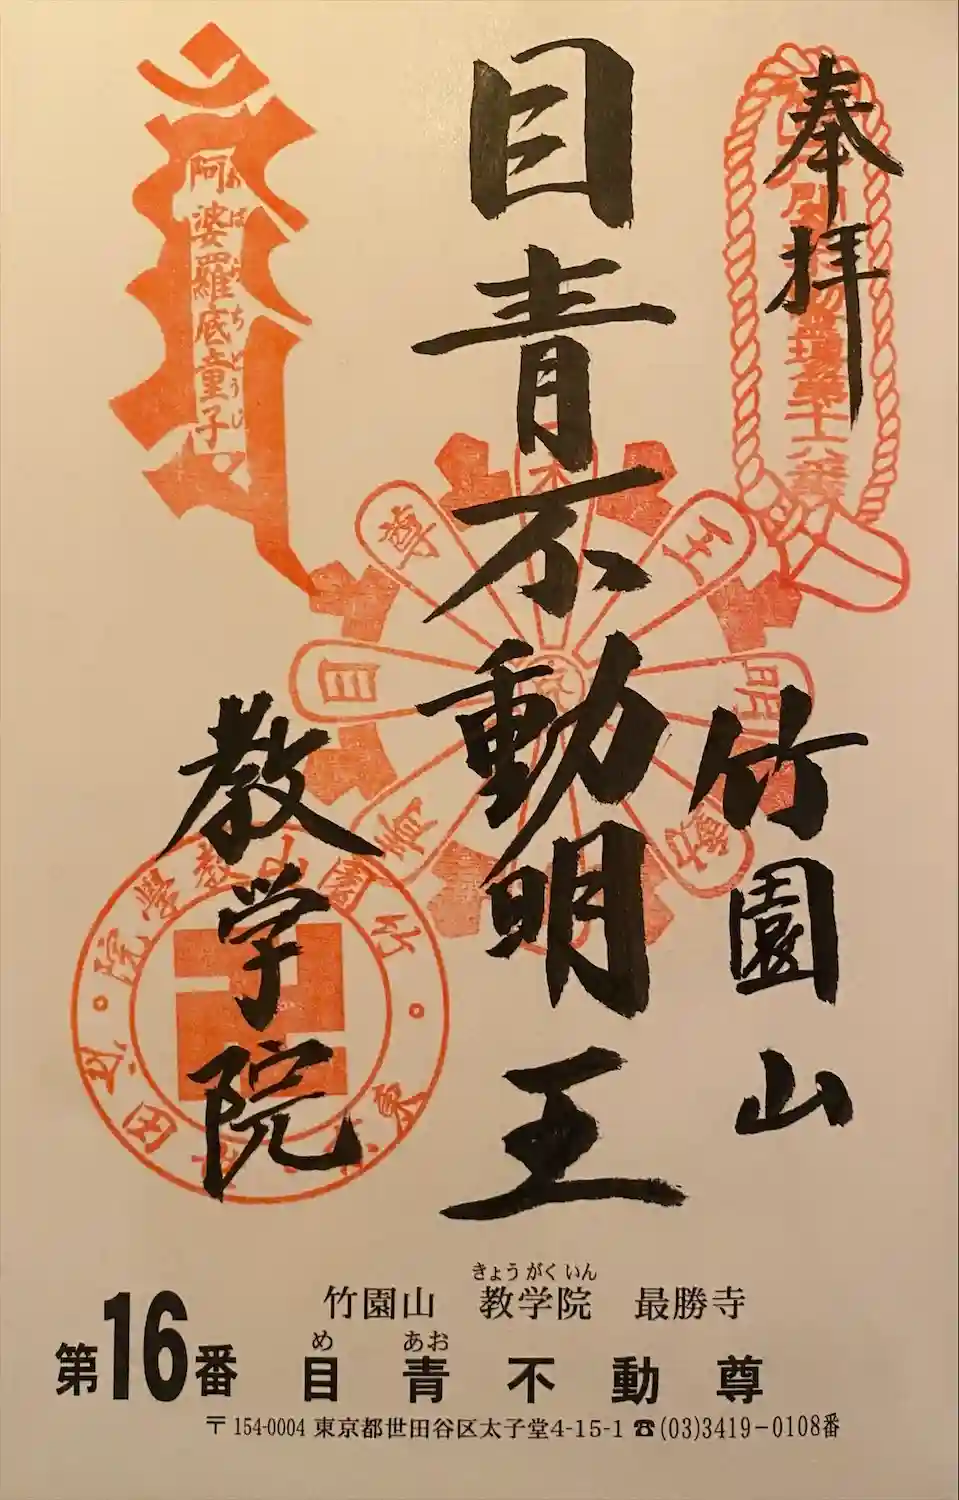 奉拝
目青不動明王
竹園山
教学院
阿婆羅底童子
あばらちどうじ
きょうがくいん
竹園山 教学院 最勝寺
め あお
第16番 目青不動尊
〒154-0004 東京都世田谷区太子堂4-15-1 ☎(03)3419-0108番